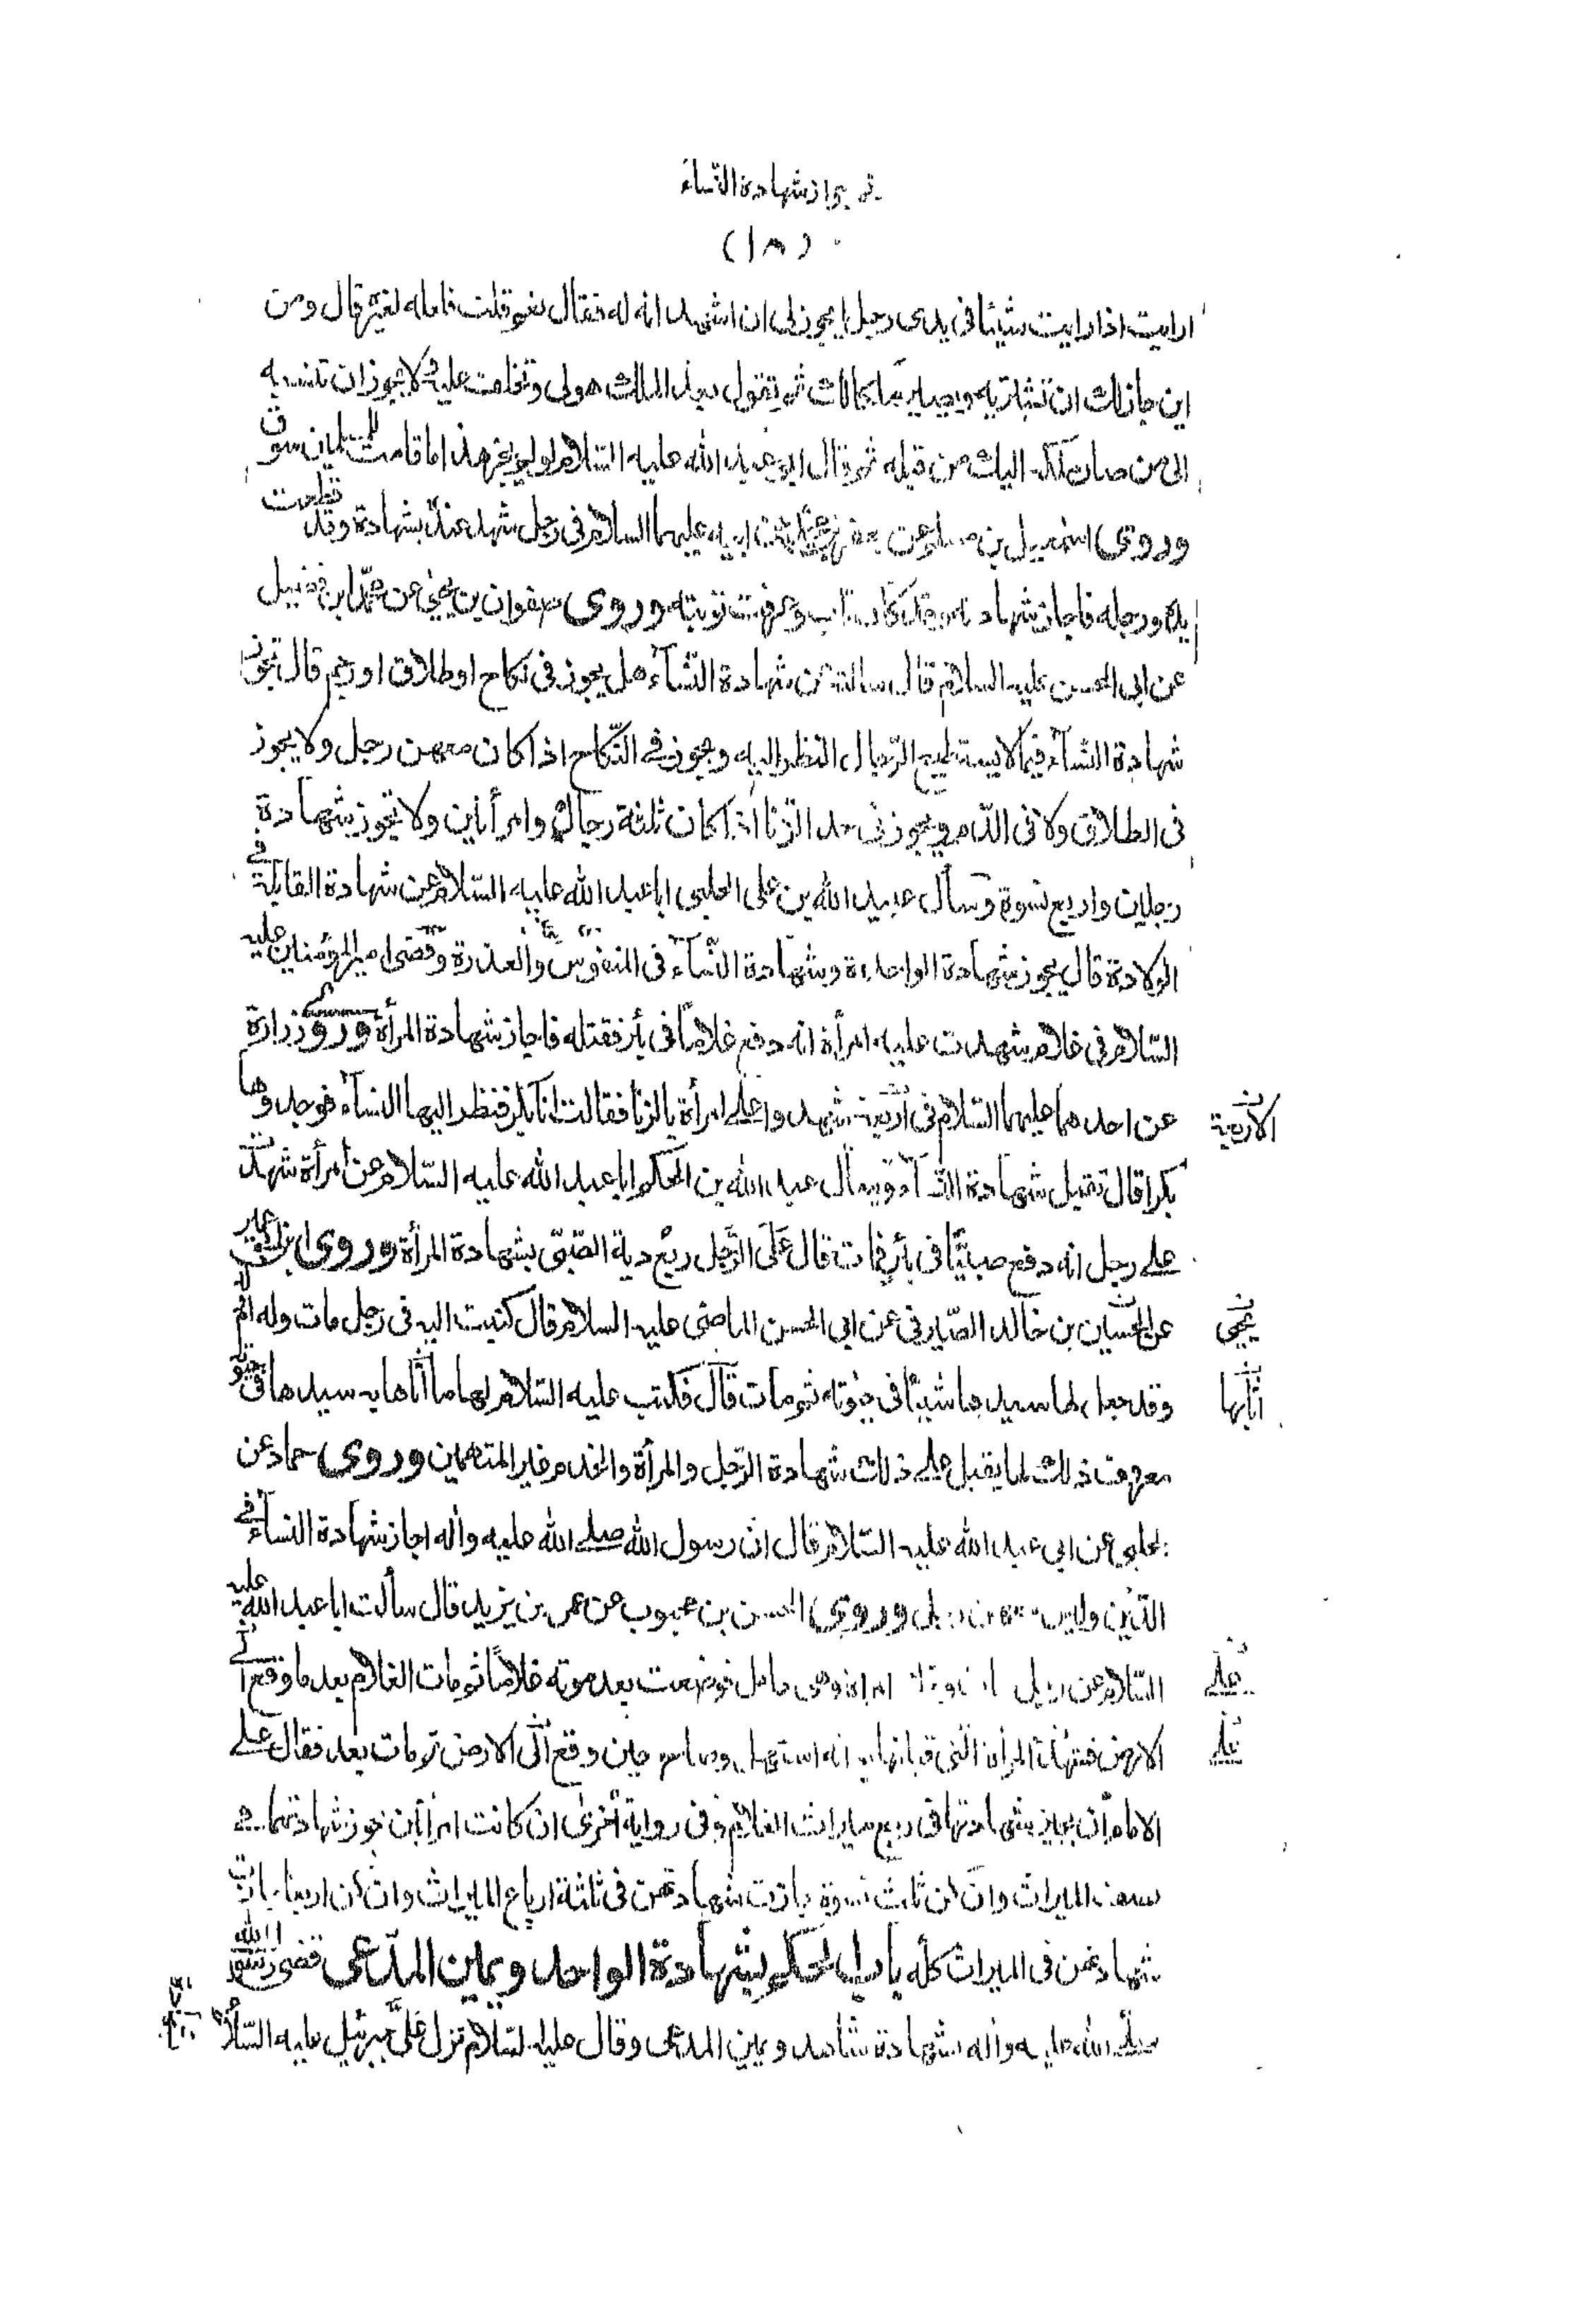 في جواز شهادة النساء
(١٨)
ارايت اذا رايت شيئا فى يدى رجل ايجوز لى ان اشهد انه له فقال نعم قلت فلعله لغيره قال ومن
اين جاز لك ان تشتريه ويصير ملكا لك ثم تقول بعد الملك هو لى وتحلف عليه ولا يجوز ان تنسبه
الى من صار ملكه اليك من قبله ثم قال ابو عبد الله عليه السلام لو لم يجز هذا ما قامت للمسلمين سوق
وروى اسمعيل بن مسلم عن جعفر بن محمد عن ابيه عليهما السلام فى رجل شهد عنده بشهادة وقد قطعت
يده ورجله فاجاز شهادته وقد كان تاب وعرفت توبته وروى صفوان بن يحيى عن محمد ابن فضيل
عن ابى الحسن عليه السلام قال سالته عن شهادة النسآء هل يجوز فى نكاح او طلاق او رجم قال تجوز
شهادة النسآء فيما لا يستطيع الرجال النظر اليه ويجوز فى النكاح اذا كان معهن رجل ولا يجوز
فى الطلاق ولا فى الدم ويجوز فى حد الزنا اذا كان ثلثة رجال وامرأتين ولا تجوز شهادة
رجلين واربع نسوة وسأل عبيد الله بن على الحلبى ابا عبد الله عليه السلام عن شهادة القابلة فى
الولادة قال يجوز شهادة الواحدة وشهادة النسآء فى المنفوس والعذرة وقضى امير المؤمنين عليه
السلام فى غلام شهدت عليه امرأة انه دفع غلاما فى بئر فقتله فاجاز شهادة المرأة وروى زرارة
عن احدهما عليهما السلام فى أربعة شهدوا على امرأة بالزنا فقالت انا بكر فنظر اليها النسآء فوجدوها
الاربعة
بكرا قال تقبل شهادة النسآء وسأل عبد الله بن الحكم ابا عبد الله عليه السلام عن امرأة شهدت
على رجل انه دفع صبيا فى بئر فمات قال على الرجل ربع دية الصبى بشهادة المرأة وروى ابن ابى عمير
عن الحسين بن خالد الصيرفى عن ابى الحسن الماضى عليه السلام قال كتبت اليه فى رجل مات وله ام
يحيى
وقد جعل لها سيدها شيئا فى حيوته ثم مات قال فكتب عليه السلام لها ما اثابها به سيدها فى حيوته
اثابها
معروف ذلك لها يقبل على ذلك شهادة الرجل والمرأة والخدم غير المتهمين وروى حماد عن
الحلبى عن ابى عبد الله عليه السلام قال ان رسول الله صلى الله عليه واله اجاز شهادة النسآء فى
الدين وليس معهن رجل وروى الحسن بن محبوب عن عمر بن يزيد قال سألت ابا عبد الله عليه
السلام عن رجل امرأة وهى حامل فوضعت بعد موته غلاما ثم مات الغلام بعد ما وقع الى
على
الارض فشهدت المرأة التى قبلتها انه استهل وصاح حين وقع الى الارض ثم مات بعد فقال على
على
الامام ان يجيز شهادتها فى ربع ميراث الغلام وفى رواية اخرى ان كانت امرأتين تجوز شهادتهما فى
نصف الميراث وان كن ثلث نسوة جازت شهادتهن فى ثلثة ارباع الميراث وان كن اربعا جازت
شهادتهن فى الميراث كله باب الحكم بشهادة الواحد ويمين المدعى قضى رسول الله
صلى الله عليه واله بشهادة شاهد ويمين المدعى وقال عليه السلام نزل على جبرئيل عليه السلام